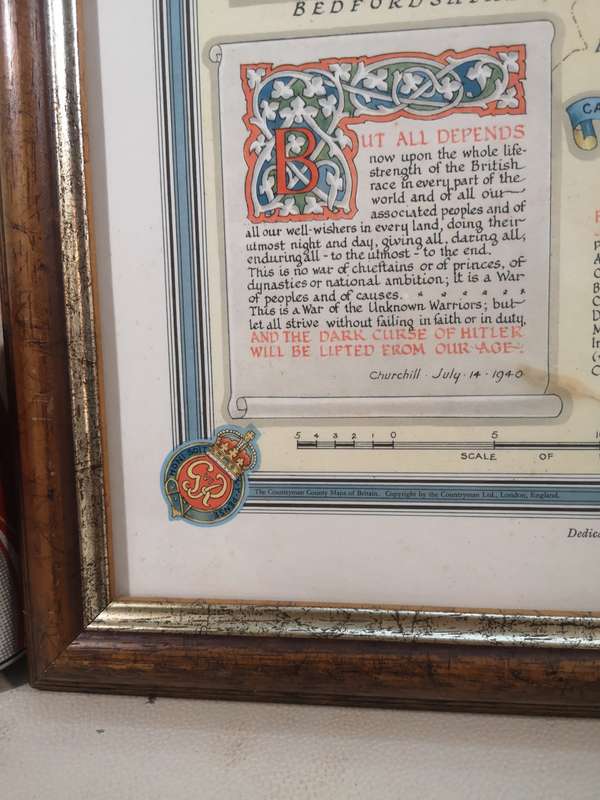 BEDFORDSHIRE
CA
BUT ALL DEPENDS
now upon the whole life-
strength of the British
race in every part of the
world and of all our
associated peoples and of
all our well-wishers in every land, doing their
utmost night and day, giving all, daring all,
enduring all - to the utmost - to the end.
This is no war of chieftains or of princes, of
dynasties or national ambition; it is a War
of peoples and of causes.
This is a War of the Unknown Warriors; but
let all strive without failing in faith or in duty,
AND THE DARK CURSE OF HITLER
WILL BE LIFTED FROM OUR AGE.
Churchill · July · 14 · 1940
5 4 3 2 1 0 5
SCALE OF
HONI SOIT
GR
The Countryman County Maps of Britain. Copyright by the Countryman Ltd., London, England.
Dedica